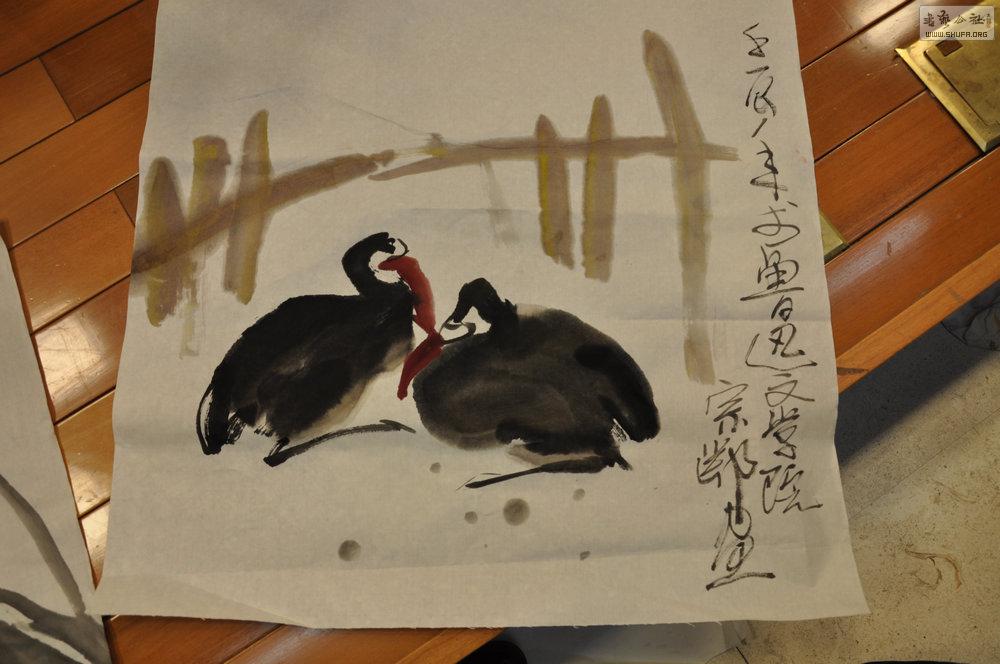 壬辰年于鲁迅文学院
宗鄂画
書藝公社
WWW.SHUFA.ORG